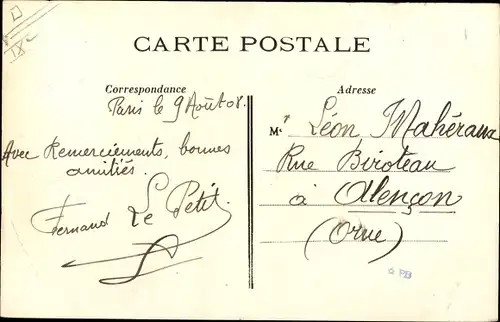 IXe
CARTE POSTALE
Correspondance
Paris le 9 Août 08.
Avec Remerciements, bonnes
amitiés.
Fernand Le Petit.
Adresse
Mr Léon Mahéraux
Rue Biroteau
à Alençon
(Orne)
PB